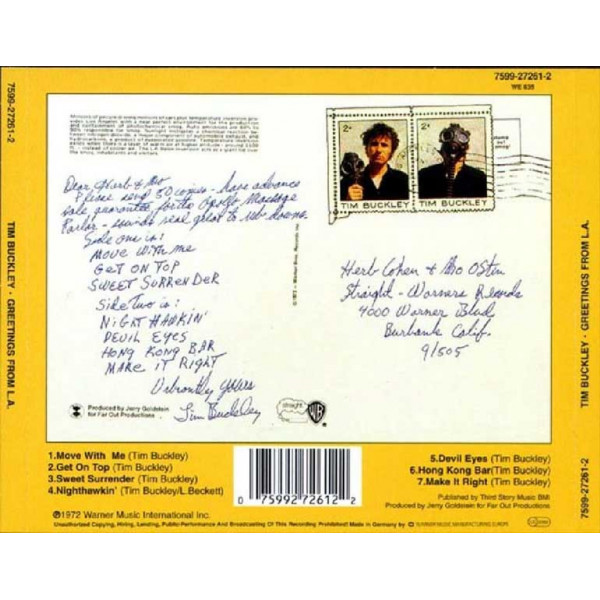 7599-27261-2
TIM BUCKLEY · GREETINGS FROM L.A.
7599-27261-2
WE 835
Millions of people driving millions of cars plus temperature inversion
provides Los Angeles with a near perfect environment for the production
and containment of photochemical smog.
2¢
2¢
TIM BUCKLEY
TIM BUCKLEY
Dear Herb & Mo
Please send 50 copies - have advance
sale guarantee for the Apollo Massage
Parlor - sounds real great to rub downs.
Side one is:
MOVE WITH ME
GET ON TOP
SWEET SURRENDER
Side two is:
NIGHT HAWKIN'
DEVIL EYES
HONG KONG BAR
MAKE IT RIGHT
Vibrantly Yours
Tim Buckley
© 1972 - Warner Bros. Records, Inc.
Herb Cohen & Mo Ostin
Straight - Warners Records
4000 Warner Blvd
Burbank Calif.
91505
Produced by Jerry Goldstein
for Far Out Productions
straight
WB
1.Move With Me (Tim Buckley)
2.Get On Top (Tim Buckley)
3.Sweet Surrender (Tim Buckley)
4.Nighthawkin' (Tim Buckley/L.Beckett)
0 75992 72612 2
5.Devil Eyes (Tim Buckley)
6.Hong Kong Bar(Tim Buckley)
7.Make It Right (Tim Buckley)
Published by Third Story Music BMI
Produced by Jerry Goldstein for Far Out Productions
℗1972 Warner Music International Inc.
Unauthorized Copying, Hiring, Lending, Public-Performance And Broadcasting Of This Recording Prohibited. Made in Germany by
TIM BUCKLEY · GREETINGS FROM L.A.
7599-27261-2